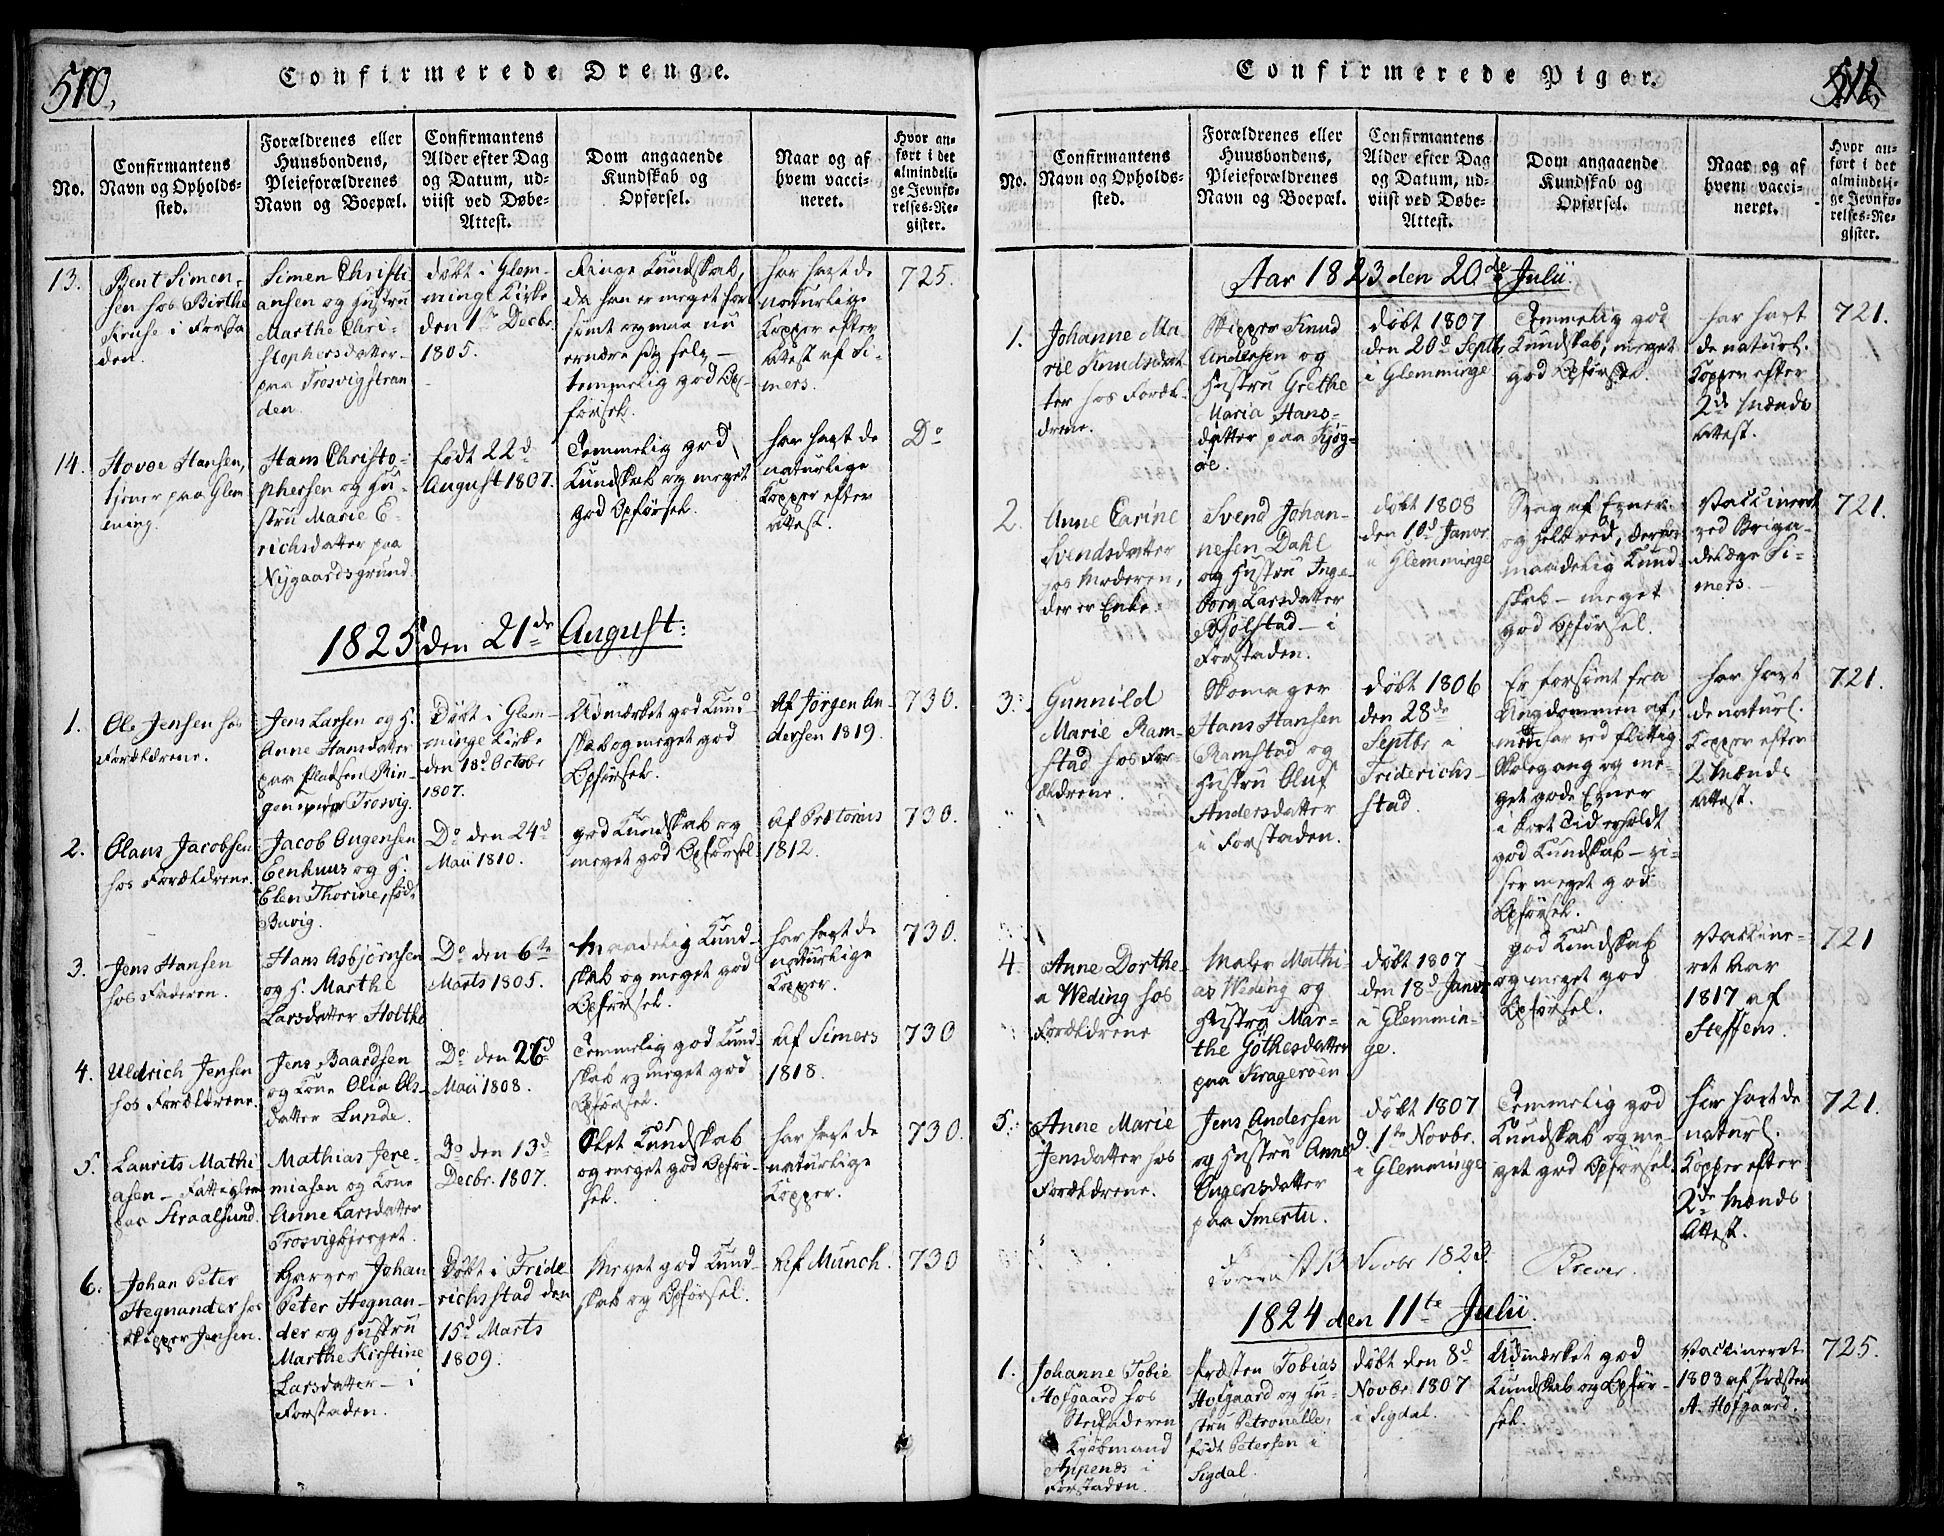 510,
Confirmerede Drenge.
No.
Confirmantens
Navn og Opholds-
sted.
Forældrenes eller
Huusbondens,
Pleieforældrenes
Navn og Boepæl.
Confirmantens
Alder efter Dag
og Datum, ud-
viist ved Døbe-
Attest.
Dom angaaende
Kundskab og
Opførsel.
Naar og af
hvem vacci-
neret.
Hvor an-
ført i det
almindeli-
ge Jevnfø-
relses-Re-
gister.
13.
Bent Simen-
sen hos Birthe
i Forsta
den.
Simen Christi
ansen og Hustru
Marthe Chri-
stophersdatter
paa Trosvigstran
den.
døbt i Glem-
minge Kirke
den 1ste Decbr.
1805.
Ringe Kundskab,
da han er meget for
sømt og maa nu
ernære sig selv —
temmelig god Op-
førsel.
har havt de
naturlige
Kopper efter
Attest af Si-
mers.
725.
14.
Hovoe Hansen,
tjener paa Glem
ening.
Hans Christo-
phersen og Hu-
stru Marie E-
richsdatter paa
Nygaardsgrund.
født 22d
August 1807.
Temmelig god
Kundskab og meget
god Opførsel.
har havt de
naturlige
Kopper efter
Attest.
Do
1825 den 21de August:
1.
Ole Jensen hos
Forældrene.
Jens Larsen og H.
Anne Hansdatter
paa Pladsen Rin-
gen Trosvig.
Døbt i Glem-
minge Kirke
den 18d Octobr
1807.
Udmærket god Kund-
skab og meget god
Opførsel.
Af Jørgen An-
dersen 1819.
730.
2.
Olaus Jacobsen
hos Forældrene.
Jacob Eugensen
Eenhuus og H.
Elen Thorine, født
Buvig.
Do den 24d
Maii 1810.
god Kundskab og
meget god Opførsel.
Af Prætorius
1812.
730.
3.
Jens Hansen
hos Faderen.
Hans Asbjørnsen
og H. Marthe
Larsdatter Holthe
Do den 6te
Marts 1805.
Maadelig Kund-
skab og meget god
Opførsel.
har havt de
naturlige
Kopper.
730.
4.
Uldrich Jensen
hos Forældrene.
Jens Baardsen
og Kone Olia Ols-
datter Lunde.
Do den 26d
Maii 1808.
Temmelig god Kund-
skab og meget god
Opførsel.
Af Simers
1818.
730
5.
Laurits Mathi
asen — Fattiglem
paa Straalsund.
Mathias Jere-
miasen og Kone
Anne Larsdatter
Trosvigbjerget.
Do den 13d
Decbr. 1807.
Slet Kundskab
og meget god Opfør-
sel.
har havt de
naturlige
Kopper.
730.
6.
Johan Peter
Hegnander hos
Skipper Jensen.
Garver Johan
Peter Hegnan-
der og Hustru
Marthe Kirstine
Larsdatter — i
Forstaden.
Døbt i Fride
richsstad den
15d Marts
1809.
Meget god Kund-
skab og Opførsel.
Af Munch.
730
Confirmerede Piger.
511,
No.
Confirmantens
Navn og Opholds-
sted.
Forældrenes eller
Huusbondens,
Pleieforældrenes
Navn og Boepæl.
Confirmantens
Alder efter Dag
og Datum, ud-
viist ved Døbe-
Attest.
Dom angaaende
Kundskab og
Opførsel.
Naar og af
hvem vacci-
neret.
Hvor an-
ført i det
almindeli-
ge Jevnfø-
relses-Re-
gister.
Aar 1823 den 20de Julii.
1.
Johanne Ma-
rie Knudsdat
ter hos Foræl-
drene.
Skipper Knud
Andersen og
Hustru Grethe
Maria Hans-
datter paa Kjøg-
øe.
døbt 1807
den 20d Septb
i Glemminge
Temmelig god
Kundskab, meget
god Opførsel.
har havt
de naturl.
Kopper efter
2de Mænds
Attest.
721.
2.
Anne Carine
Svendsdatter
hos Moderen,
der er Enke.
Svend Johan-
nesen Dahl
og Hustru Inge-
borg Larsdatter
Bjølstad — i
Forstaden.
døbt 1808
den 10d Janvr
i Glemminge
Svag af Evner
og Helbred, derfor
maadelig Kund
skab — meget
god Opførsel.
Vaccineret
ved Briga-
delæge Si-
mers.
721.
3.
Gunnild
Marie Ram-
stad hos For-
ældrene.
Skomager
Hans Hansen
Ramstad og
Hustru Oluf
Andersdatter
i Forstaden.
døbt 1806
den 28de
Septbr i
Friderichs
stad.
Er forsømt fra
Ungdommen af,
men har ved flittig
Skolegang og me-
get gode Evner
i kort Tid erholdt
god Kundskab — vi-
ser meget god
Opførsel.
har havt
de naturl.
Kopper efter
2 Mænds
Attest.
721.
4.
Anne Dorthe-
a Weding hos
Forældrene
Maler Mathi-
as Weding og
Hustru Mar-
the Göthesdatter
paa Kragerøen
døbt 1807
den 18d Janvr
i Glemmin-
ge.
god Kundskab
og meget god
Opførsel.
Vaccine-
ret Aar
1817 af
Steffens.
721
5.
Anne Marie
Jensdatter hos
Forældrene.
Jens Andersen
og Hustru Anne
Eugensdatter
paa Smertu.
døbt 1807
d. 1ste Novbr.
i Glemminge
Temmelig god
Kundskab og me-
get god Opførsel.
har havt de
naturl.
Kopper efter
2de Mænds
Attest.
721.
13 Novbr 1823.
1824 den 11te Julii.
1.
Johanne Tobie
Hofgaard hos
Stiffaderen
Kjøbmand
Appenæs i
Forstaden.
Præsten Tobias
Hofgaard og Hu-
stru Petronelle,
født Petersen i
Sigdal.
døbt den 8d
Novbr 1807
i Sigdal.
Udmærket god
Kundskab og Opfør-
sel.
Vaccineret
1808 af Præsten
A. Hofgaard.
725.